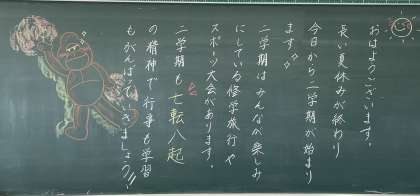 おはようございます。
長い夏休みが終わり
今日から二学期が始まり
ます。
二学期はみんなが楽しみ
にしている修学旅行や
スポーツ大会があります。
二学期も七転八起
の精神で行事も学習
もがんばっていきましょう!!